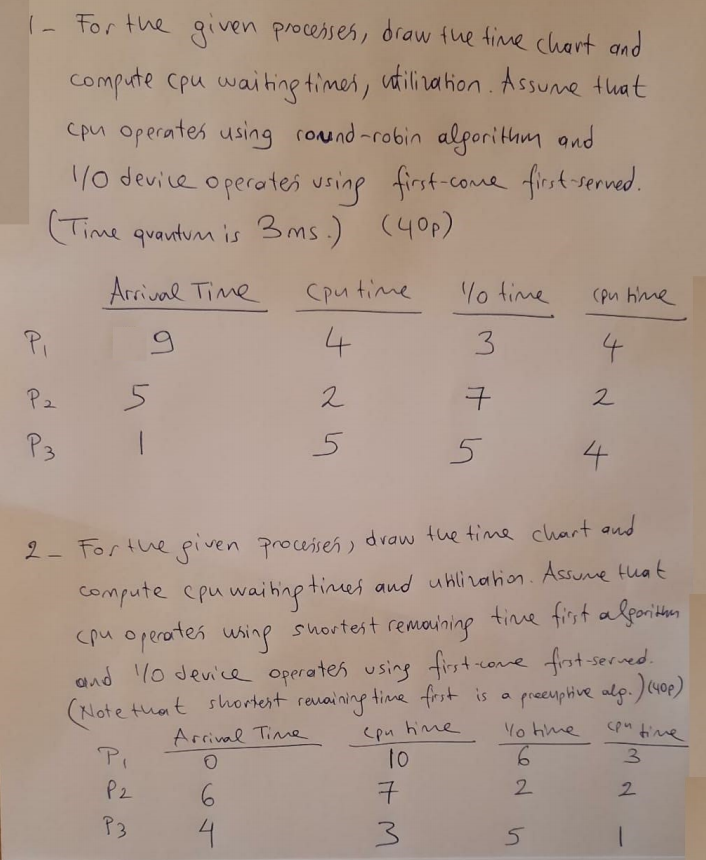 1- For the given processes, draw the time chart and
compute cpu waiting times, utilization. Assume that
cpu operates using round-robin algorithm and
I/O device operates using first-come first-served.
(Time quantum is 3ms.) (40p)
Arrival Time cpu time I/o time cpu time
P1 9 4 3 4
P2 5 2 7 2
P3 1 5 5 4
2- For the given processes, draw the time chart and
compute cpu waiting times and utilization. Assume that
cpu operates using shortest remaining time first algorithm
and I/o device operates using first-come first-served.
(Note that shortest remaining time first is a preemptive alg.) (40p)
Arrival Time cpu time I/o time cpu time
P1 0 10 6 3
P2 6 7 2 2
P3 4 3 5 1